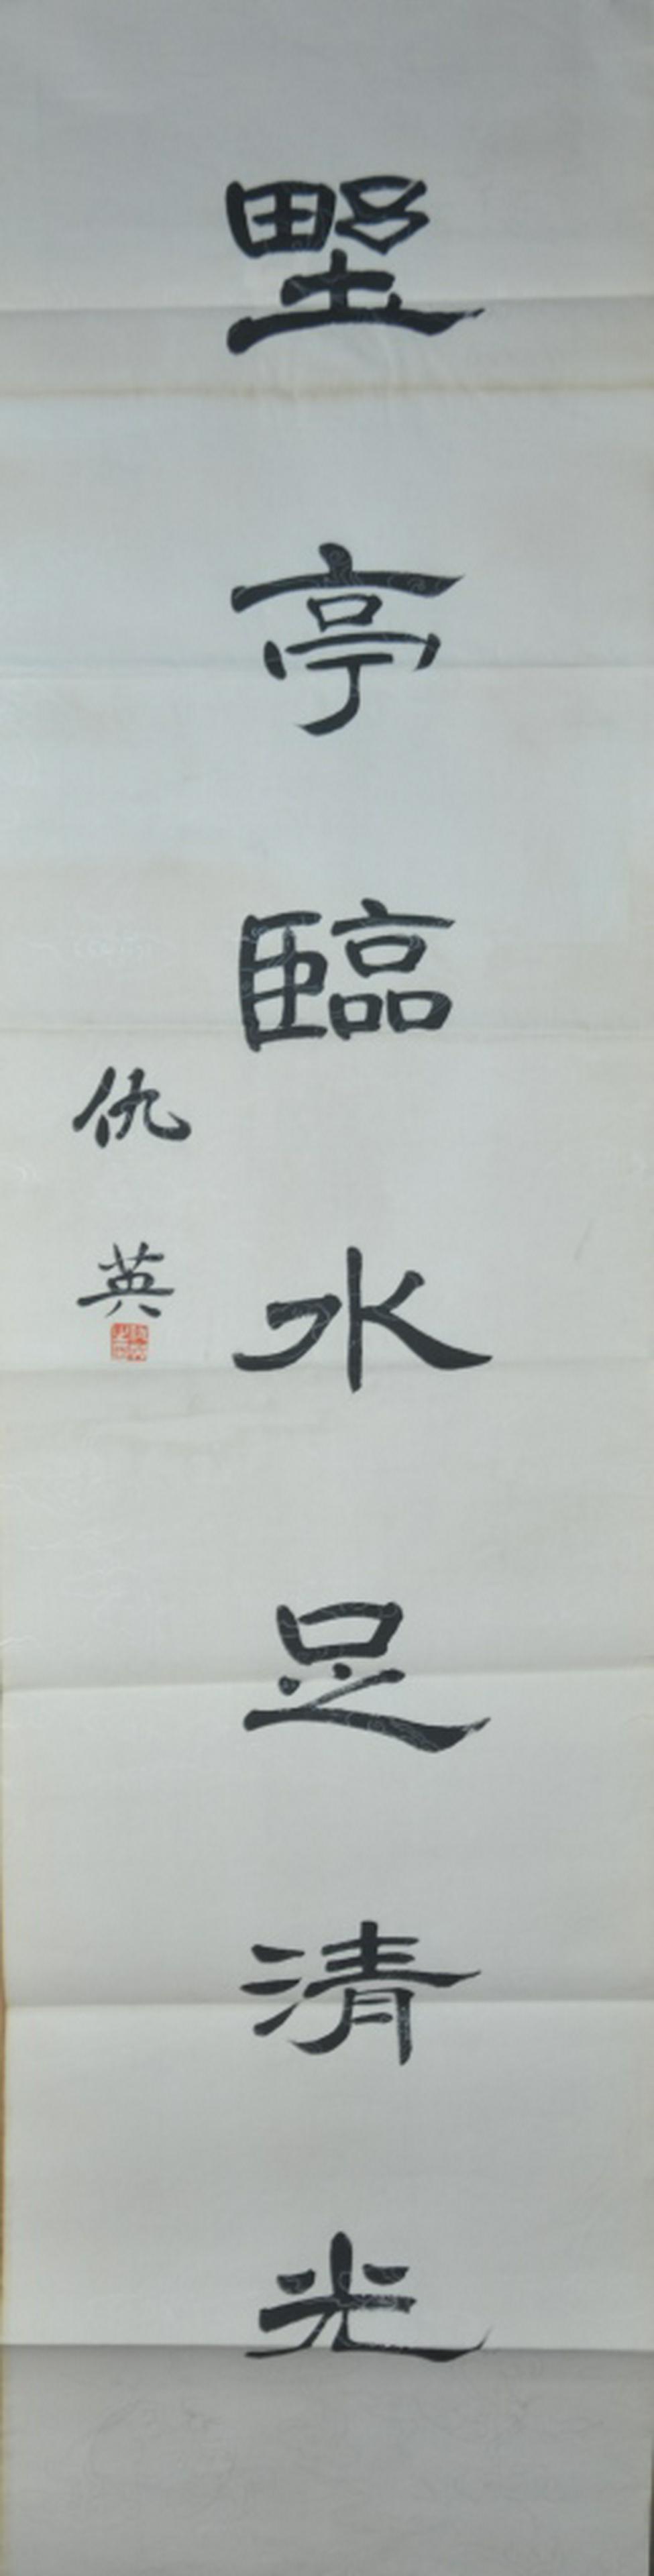 野亭臨水足清光
仇英